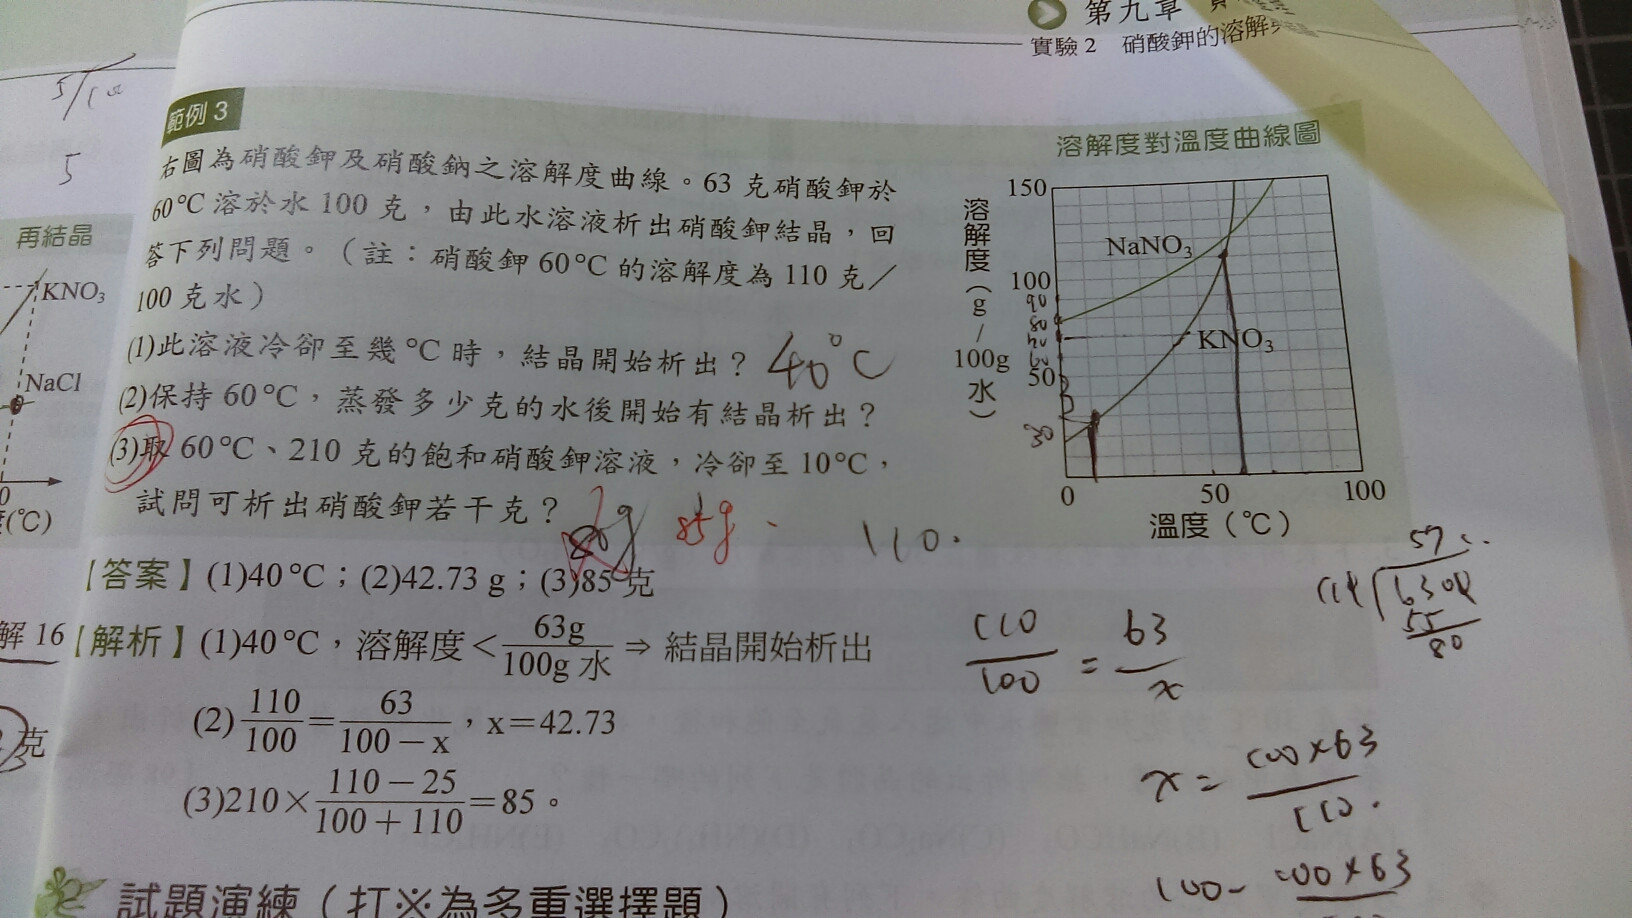 第九章
實驗 2 硝酸鉀的溶解
5
範例 3
右圖為硝酸鉀及硝酸鈉之溶解度曲線。63 克硝酸鉀於
60°C 溶於水 100 克，由此水溶液析出硝酸鉀結晶，回
答下列問題。（註：硝酸鉀 60°C 的溶解度為 110 克／
100 克水）
(1)此溶液冷卻至幾 °C 時，結晶開始析出？ 40°C
(2)保持 60°C，蒸發多少克的水後開始有結晶析出？
(3)取 60°C、210 克的飽和硝酸鉀溶液，冷卻至 10°C，
試問可析出硝酸鉀若干克？
85g
110.
溶解度對溫度曲線圖
溶解度（g／100g水）
150
100
90
80
50
30
NaNO₃
KNO₃
0 50 100
溫度（°C）
再結晶
KNO₃
NaCl
(°C)
解 16
克
【答案】(1)40°C；(2)42.73 g；(3)85 克
【解析】(1)40°C，溶解度 < 63g/100g 水 ⇒ 結晶開始析出
(2) 110/100 = 63/(100－x)，x＝42.73
(3)210× (110－25)/(100＋110) ＝85。
110/100 = 63/x
x = 100×63/110.
試題演練（打※為多重選擇題）